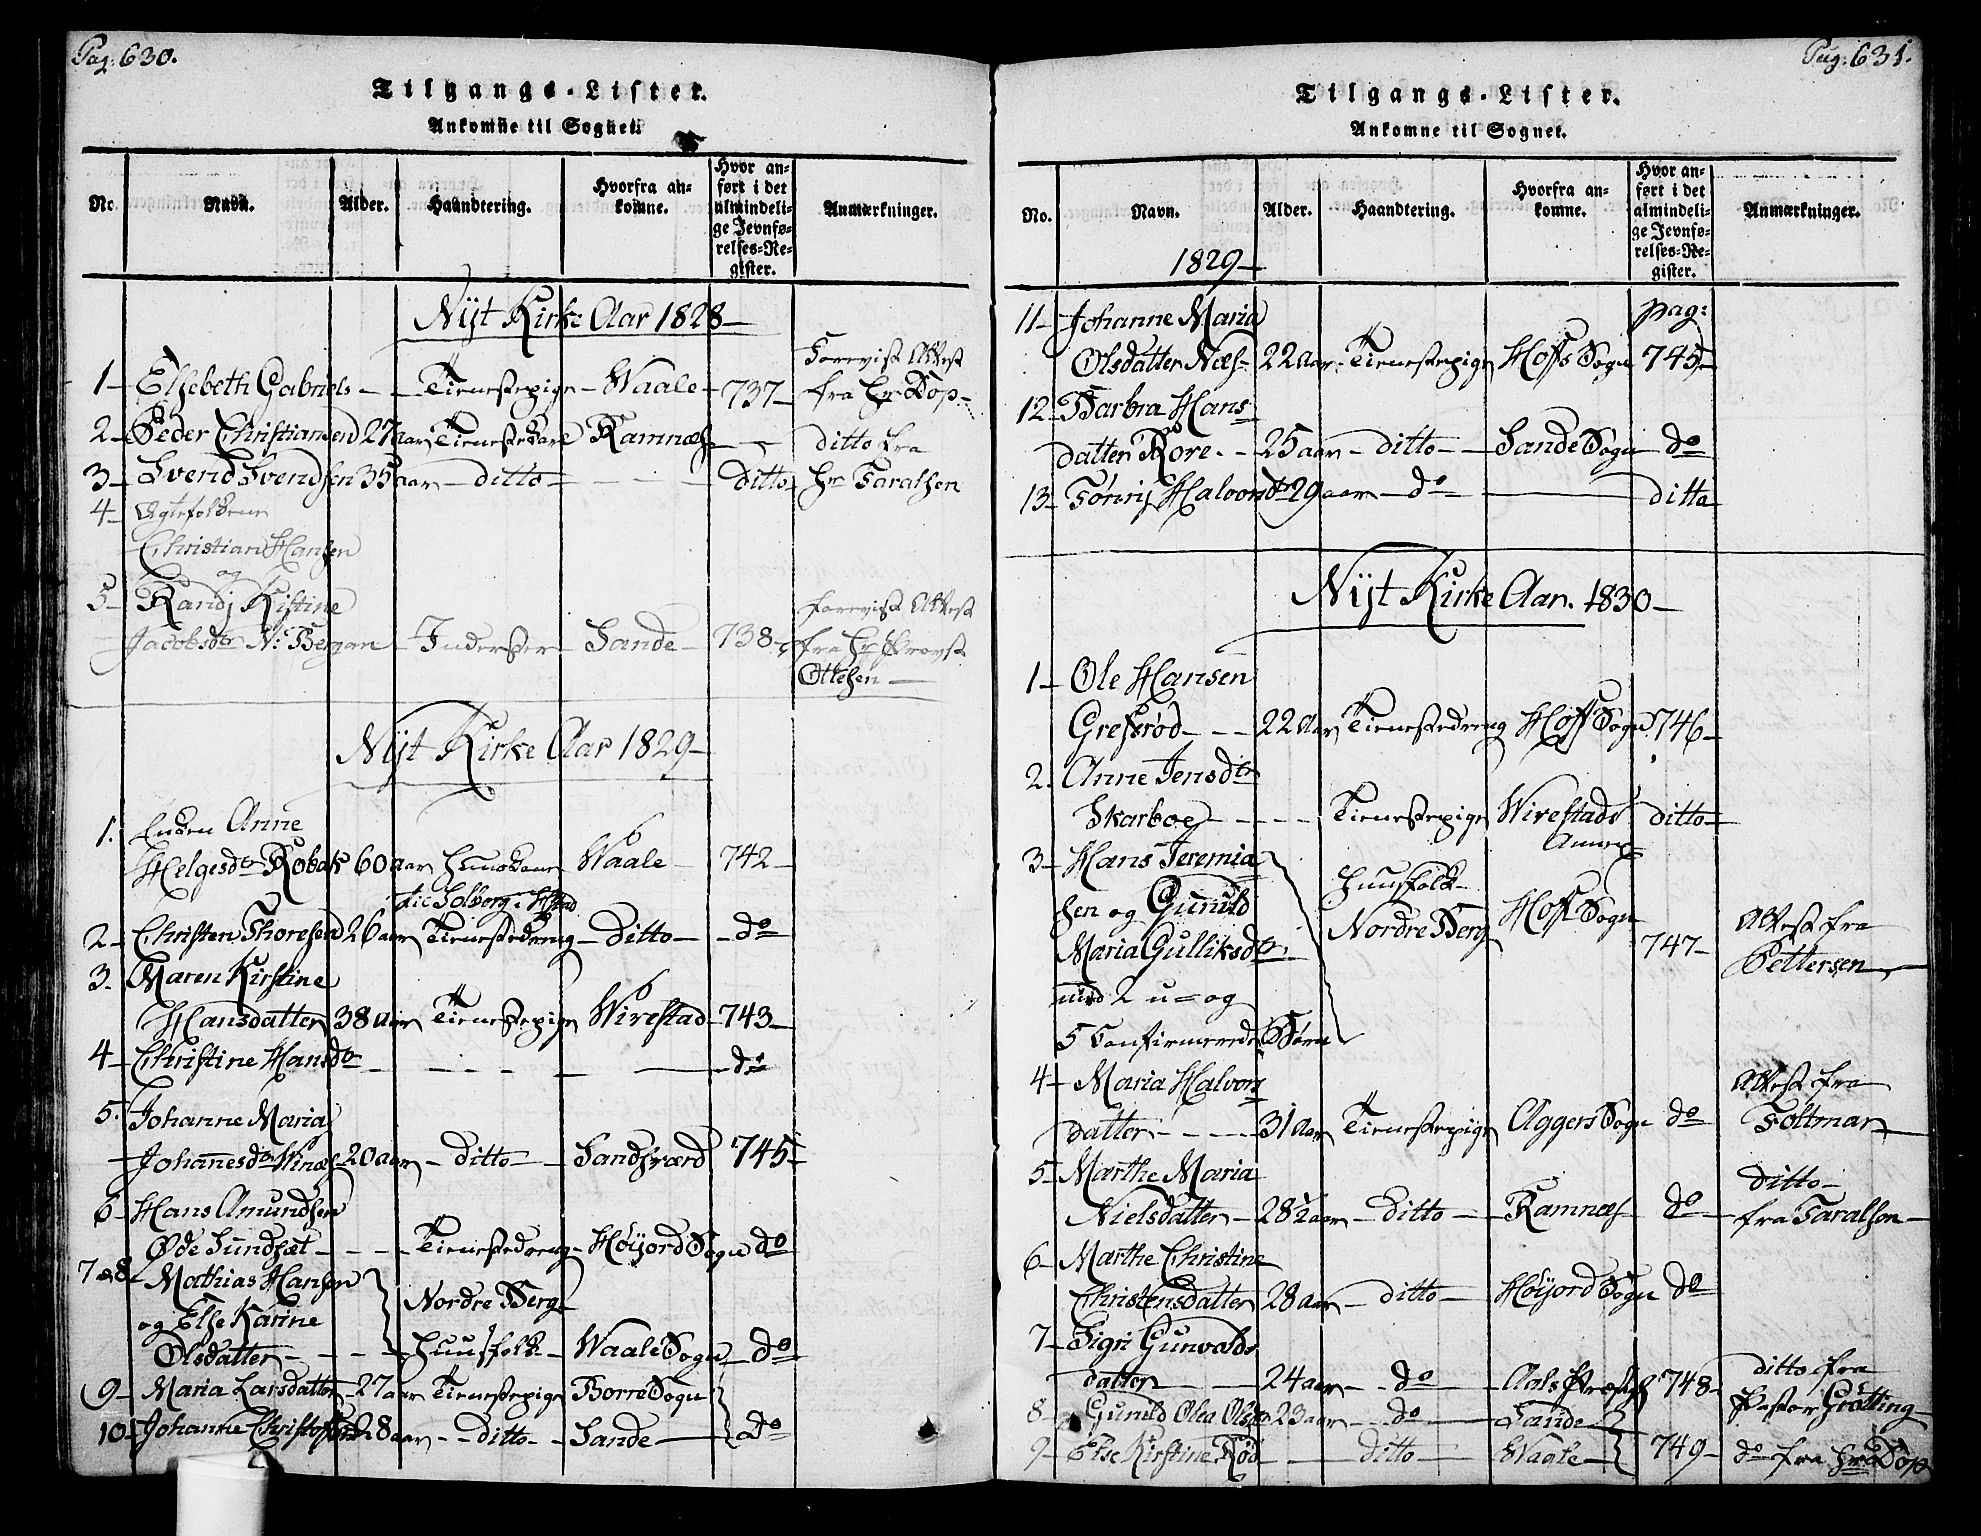 Pag: 630.
Tilgangs-Lister.
Ankomne til Sognet.
No.
Navn.
Alder.
Haandtering.
Hvorfra an-
komne.
Hvor an-
ført i det
almindeli-
ge Jevnfø-
relses-Re-
gister.
Anmærkninger.
Nÿt Kirke Aar 1828
1 Elsebeth Gabriels - - Tienestepige - Waale - 737 - Forevist Attest
fra Hr Dop
2 Peder Christiansen 27 aar Tienestekarl Ramnæs - - ditto fra
3 Svend Svendsen 35 aar - ditto - - - - ditto Hr Taralsen
4 Ægtefolkene
Christian Hansen
og
5 Randj Kistine
Jacobsdtr N: Bergan - Inderster - Sande - 738 - forevist Attest
fra Hr Provst
Ottesen
Nÿt Kirke Aar 1829
1. Enken Anne
Helgesdtr Robak 60 aar Huuskone Waale 742
til Solberg i
2 Christen Thoresen 26 aar Tienestedreng - Ditto - do
3. Maren Kirstine
Hansdatter 38 aar Tienestepige Wirestad 743
4 Christine Hansdtr - - - - do
5. Johanne Maria
Johannesdtr Winæs 20 aar - ditto - Sandsværd 745
6 Hans Amundsen
Øde Sundset - - - Tienestedreng - Høÿord Sogn do
7 & 8 Mathias Hansen
og Else Karine
Olsdatter - - - Nordre Berg
Huusfolk Waale Sogn do
9 Maria Larsdatter 27 aar Tienestepige Borre Sogn
10 Johanne 28 aar - - ditto - Sande - do
Pag: 631.
Tilgangs-Lister.
Ankomne til Sognet.
No.
Navn.
Alder.
Haandtering.
Hvorfra an-
komne.
Hvor an-
ført i det
almindeli-
ge Jevnfø-
relses-Re-
gister.
Anmærkninger.
1829
11 Johanne Maria pag:
Olsdatter Næs 22 aar Tienestepige Hoffs Sogn 745
12 Barbra Hans
datter Rore - - 25 aar - ditto - Sande Sogn do
13 Halvorsdtr 29 aar - do - ditto
Nÿt Kirke Aar. 1830
1 Ole Hansen
Grefsrød - - - 22 Aar Tienestedreng Hoff Sogn 746
2. Anne Jensdtr
Skarboe - - - - Tienestepige Wirestads ditto
Annex
3 Hans Jeremia
sen og Gunild
Maria Gulliksdtr
med 2 u= og
5 Confirmerede Børn
Huusfolk
Nordre Berg Hoff Sogn
747 Attest fra
Pettersen
4 Maria Halvors
datter - - - - 31 Aar Tienestepige Aggers Sogn do Attest fra
Foltmar
5 Marthe Maria
Nielsdatter - 28½ aar - ditto - Ramnæs - do ditto
fra Taralsen
6 Marthe Christine
Christensdatter 28 aar - ditto - Høÿord Sogn do
7 Sigri Gunvalds
datter - - 24 aar - - do - Aals 748 ditto fra
Pastor Grøtting
8 Gunild Olea Olsdtr 23 aar - - do - Sande
9 Else Kirstine Rød - - ditto - Waale 749 do fra Hr Dop